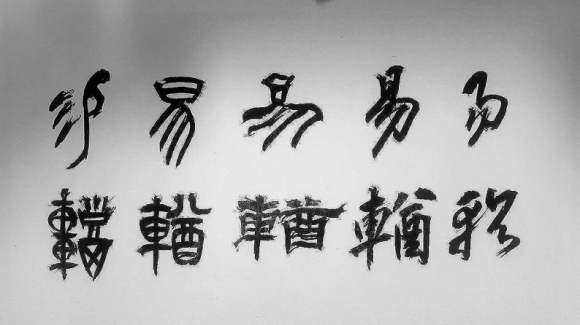 易易易易易
輶輶輶輶輶